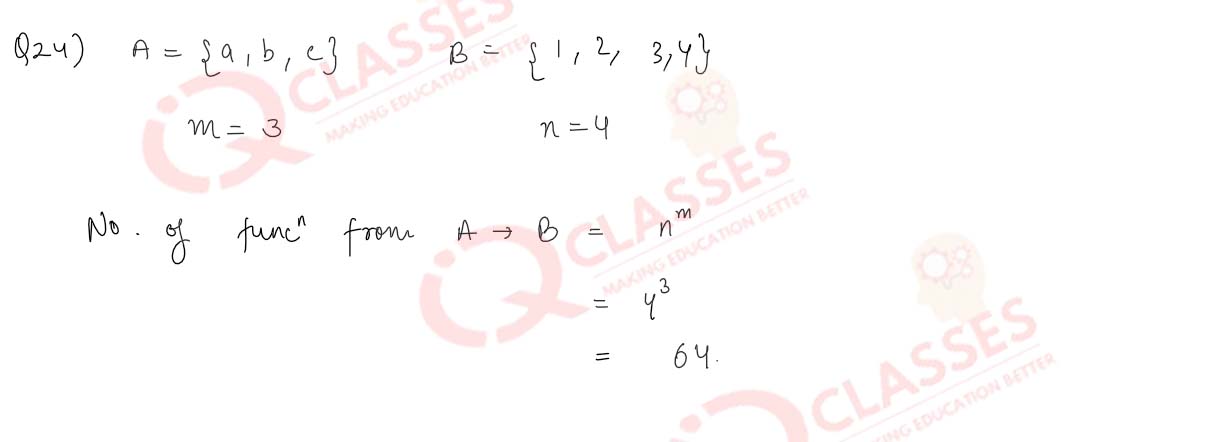 Q24) A = {a, b, c} B = {1, 2, 3, 4}
m = 3 n = 4
No. of funcⁿ from A → B = nᵐ
= 4³
= 64.
IQ CLASSES
MAKING EDUCATION BETTER
IQ CLASSES
MAKING EDUCATION BETTER
IQ CLASSES
MAKING EDUCATION BETTER